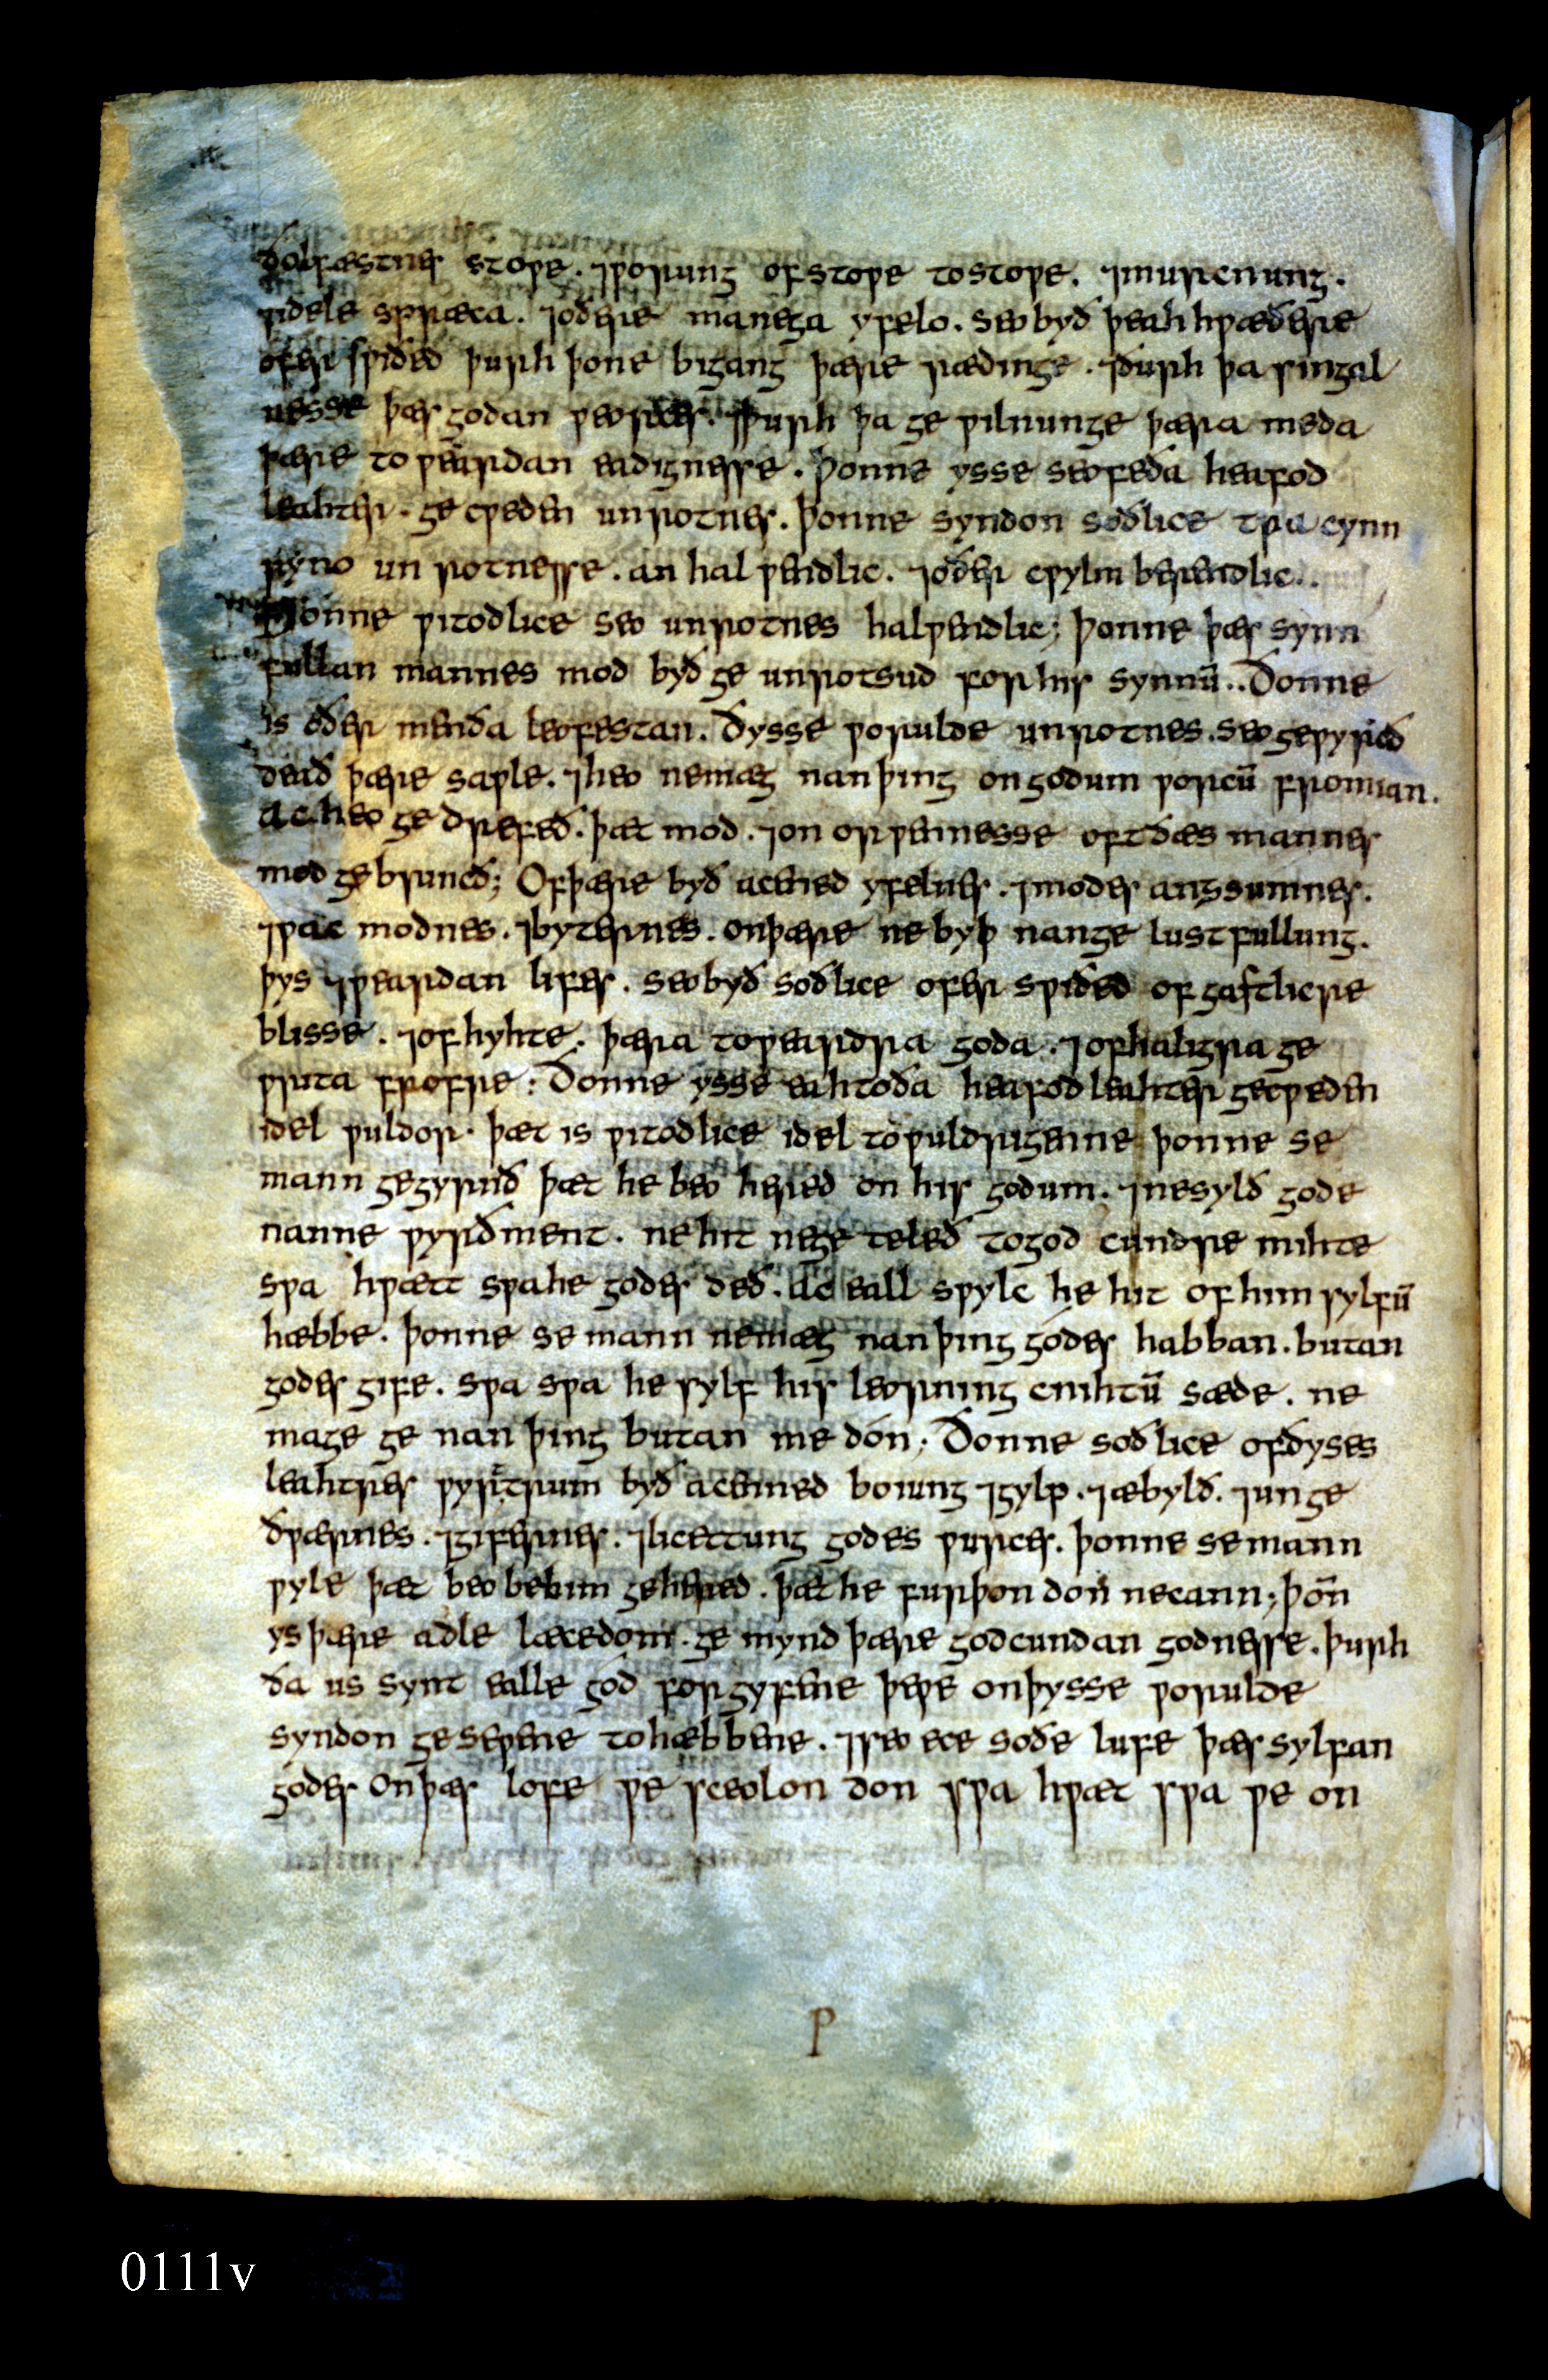 ðolfæstnes stope. ⁊ ƿorung of stoƿe to stoƿe. ⁊ murcnung.
⁊ idele spræca. ⁊ oðere manega yfelo. seo byð þeah hƿæðere
ofer sƿiðed þurh þone bigang þære rædinge. ⁊ ðurh þa singal
nesse þæs godan ƿeorces. ⁊ þurh þa ge ƿilnunge þæra meda
þære to ƿeardan eadignesse. Þonne ys se seofeða heafod
leahter. ge cƿeden unrotnes. þonne syndon soðlice tƿa cynn
ryno un rotnesse. an hal ƿendlic. ⁊ oðer cƿylm berendlic..
Þonne ƿitodlice seo unrotnes halƿendlic; þonne þæs synn
fullan mannes mod byð ge unrotsud for his synnū.. Ðonne
is oðer menda leofestan. Ðysse ƿorulde unrotnes. seo geƿyrcð
deað þære saƿle. ⁊ heo ne mæg nan þing on godum ƿorcū fromian.
Ac heo ge drefeð. þæt mod. ⁊ on orƿennesse oft ðæs mannes
mod ge bruncð; Of þære byð acenned yfelnes. ⁊ modes angsumnes.
⁊ ƿac modnes. ⁊ byternes. on þære ne byþ nan ge lustfullung.
þys ⁊ƿeardan lifes. seo byð soðlice ofer sƿiðed of gastlicre
blisse. ⁊ of hyhte. þæra toƿeardra goda. ⁊ of haligra ge
ƿrita frofre: Ðonne ys se eahtoða heafod leahter gecƿeden
idel ƿuldor. þæt is ƿitodlice idel to ƿuldrigenne þonne se
mann gegyrnð þæt he beo hered on his godum. ⁊ ne sylð gode
nanne ƿyrðment. ne hit ne ge teleð to god cundre mihte
sƿa hƿætt sƿa he godes deð. Ac eall sƿylc he hit of him sylfū
hæbbe. þonne se mann ne mæg nan þing godes habban. butan
godes gife. sƿa sƿa he sylf his leorning cnihtū sæde. ne
mage ge nan þing butan me dón; Ðonne soðlice of ðyses
leahtres ƿyrtrum byð acenned boiung ⁊ gylp. ⁊ æbylð. ⁊ unge
ðƿærnes. ⁊ gifernes. ⁊ licettung godes ƿurces. þonne se mann
ƿyle þæt beo be him gehered. þæt he furþon dón ne cann; þoñ
ys þære adle læcedom. ge mynd þære godcundan godnesse. þurh
ða us synt ealle gód forgyfene þe ƿe on þysse ƿorulde
syndon ge seƿene to hæbbene. ⁊ seo ece soðe lufe þæs sylfan
godes on þæs lofe ƿe sceolon don sƿa hƿæt sƿa ƿe on
P
0111v